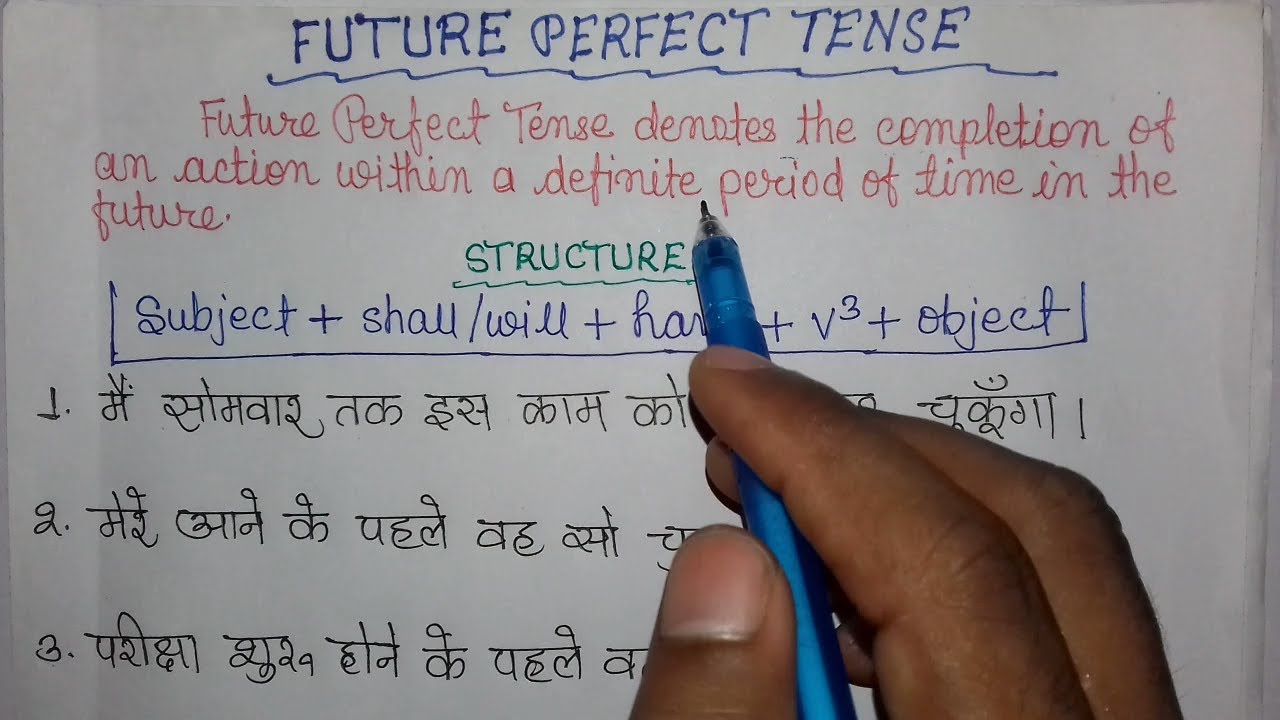 FUTURE PERFECT TENSE
Future Perfect Tense denotes the completion of
an action within a definite period of time in the
future.
STRUCTURE
Subject + shall/will + + V³ + object
1. मैं सोमवार तक इस काम को चूकूँगा।
२. मेरे आने के पहले वह सो
३. परीक्षा शुरू होने के पहले